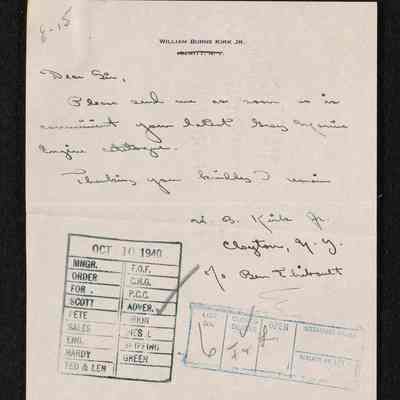 8-15
WILLIAM BURNS KIRK JR.
Dear Sir,
Please send me as soon as is
convenient your latest Gray Marine
Engine
Thanking you kindly I remain
W. B. Kirk Jr.
Clayton, N.Y.
c/o Ben Thibault
OCT 10 1940
MNGR.
ORDER
FOR.
SCOTT
PETE
SALES
ENG.
HARDY
TED & LEN
F.O.F.
C.H.G.
P.C.C.
ADVER.
SHIPPING
GREEN
6
OPEN